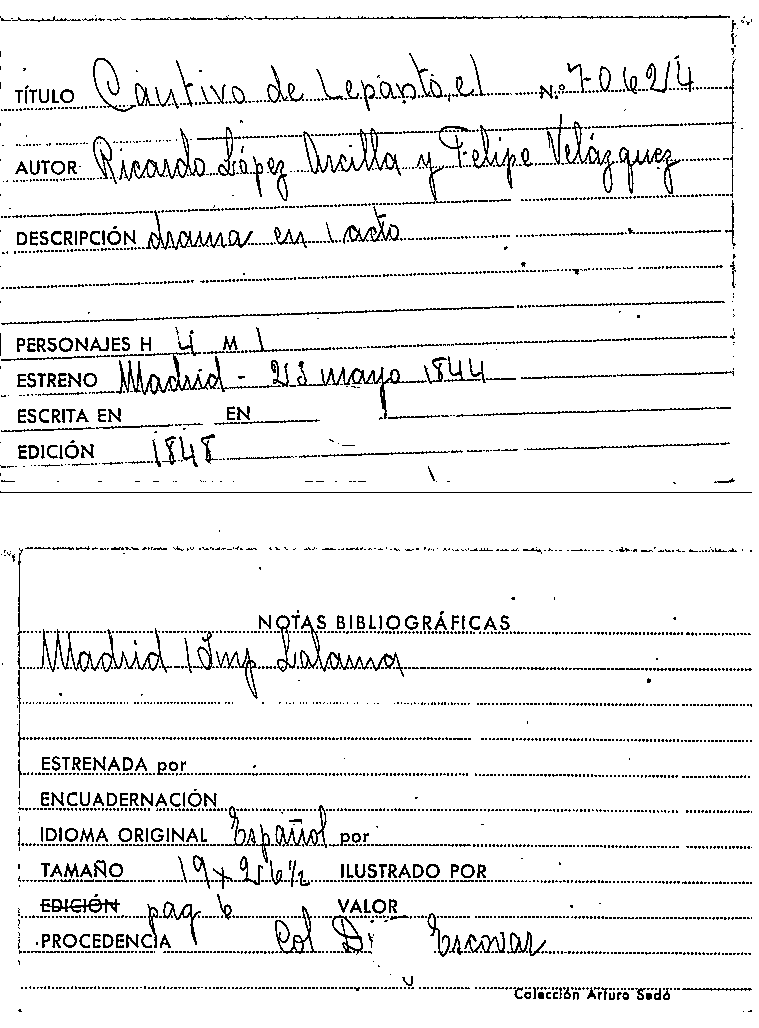 TÍTULO Cautivo de Lepanto, el N.º 7-062/4
AUTOR Ricardo López Arcilla y Felipe Velázquez
DESCRIPCIÓN drama en 1 acto
PERSONAJES H 4 M 1
ESTRENO Madrid - mayo 1844
ESCRITA EN EN
EDICIÓN 1848
NOTAS BIBLIOGRÁFICAS
Madrid / Imp Lalama
ESTRENADA por
ENCUADERNACIÓN
IDIOMA ORIGINAL Español por
TAMAÑO 19 x ILUSTRADO POR
EDICIÓN pag 6 VALOR
PROCEDENCIA Col D. Escovar
Colección Arturo Sedó